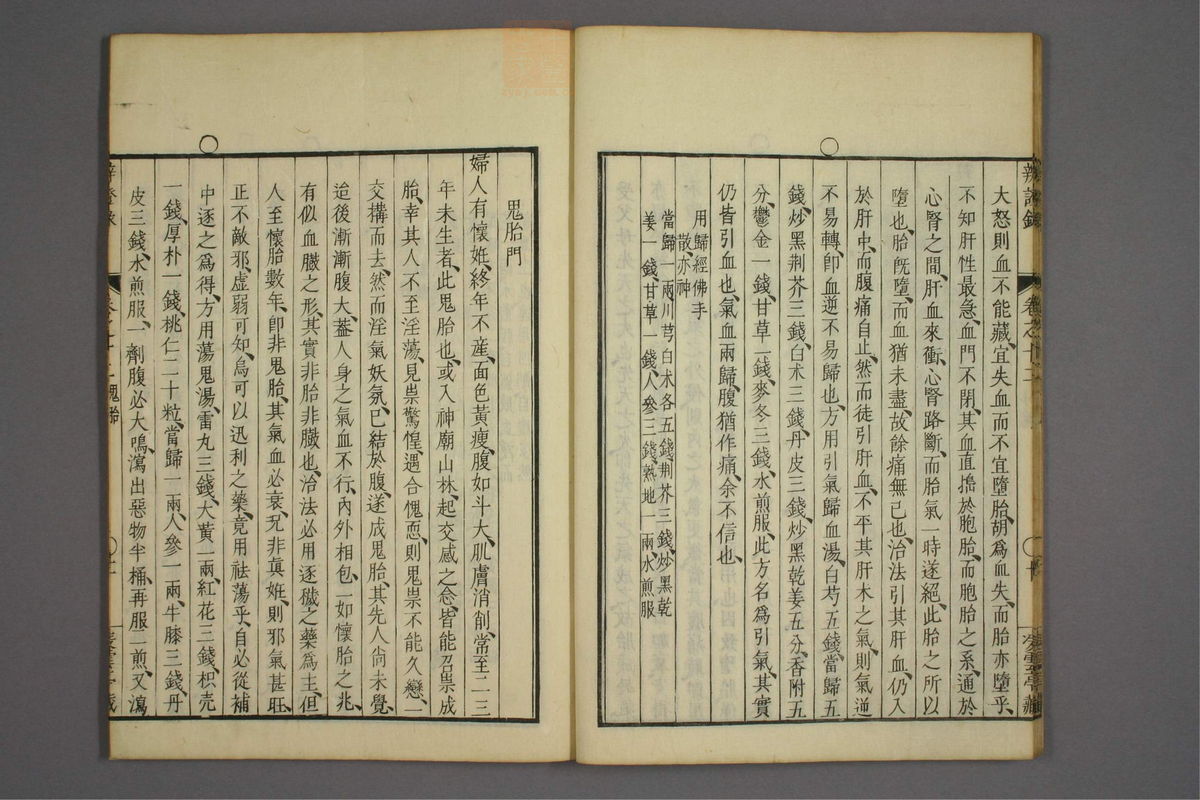 大怒則血不能藏、宜失血而不宜墮胎、胡爲血失而胎亦墮乎、
不知肝性最急、血門不閉、其血直搗於胞胎、而胞胎之系、通於
心腎之間、肝血來衝、心腎路斷、而胎氣一時遂絕、此胎之所以
墮也、胎旣墮、而血猶未盡、故餘痛無已也、治法引其肝血、仍入
於肝中、而腹痛自止、然而徒引肝血、不平其肝木之氣、則氣逆
不易轉、卽血逆不易歸也、方用引氣歸血湯、白芍五錢、當歸五
錢、炒黑荆芥三錢、白朮三錢、丹皮三錢、炒黑乾姜五分、香附五
分、鬱金一錢、甘草一錢、麥冬三錢、水煎服、此方名爲引氣、其實
仍皆引血也、氣血兩歸、腹猶作痛、余不信也、
用歸經佛手
散、亦神
當歸一兩、川芎白朮各五錢、荆芥三錢、炒黑乾
姜一錢、甘草一錢、人參三錢、熟地一兩、水煎服
辨證錄
卷之十二
十
鬼胎門
婦人有懷姙、終年不産、面色黃瘦、腹如斗大、肌膚消削、常至二三
年未生者、此鬼胎也、或入神廟山林、起交感之念、皆能召祟成
胎、幸其人不至淫蕩、見祟驚惶、遇合愧恧、則鬼祟不能久戀、一
交搆而去、然而淫氣妖氛、已結於腹、遂成鬼胎、其先人尙未覺、
迨後漸漸腹大、葢人身之氣血不行、內外相包、一如懷胎之兆、
有似血臌之形、其實非胎非臌也、治法必用逐穢之藥爲主、但
人至懷胎數年、卽非鬼胎、其氣血必衰、况非眞姙、則邪氣甚旺、
正不敵邪、虛弱可知、烏可以迅利之藥、竟用祛蕩乎、自必從補
中逐之爲得、方用蕩鬼湯、雷丸三錢、大黃一兩、紅花三錢、枳壳
一錢、厚朴一錢、桃仁二十粒、當歸一兩、人參一兩、牛膝三錢、丹
皮三錢、水煎服、一劑腹必大鳴、瀉出惡物半桶、再服二煎、又瀉